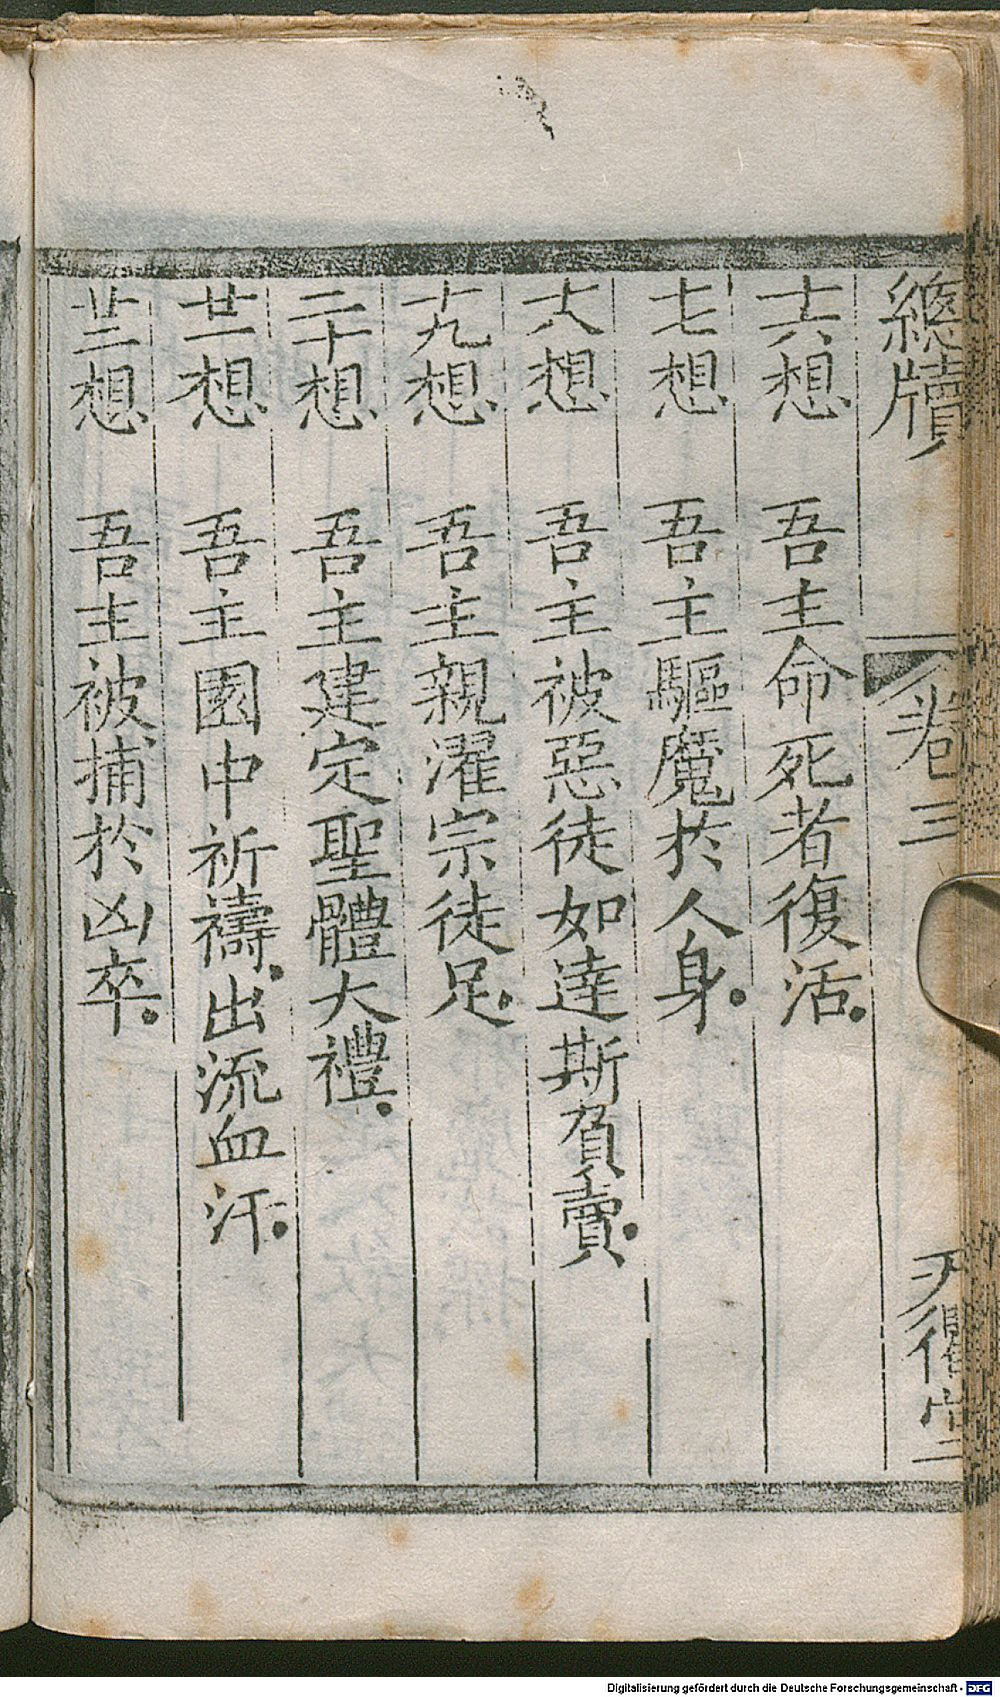 總牘 卷三 二
十六想 吾主命死者復活.
十七想 吾主驅魔於人身.
十八想 吾主被惡徒如達斯負賣.
十九想 吾主親濯宗徒足.
二十想 吾主建定聖體大禮.
廿一想 吾主園中祈禱.出流血汗.
廿二想 吾主被捕於凶卒.
Digitalisierung gefördert durch die Deutsche Forschungsgemeinschaft - DFG